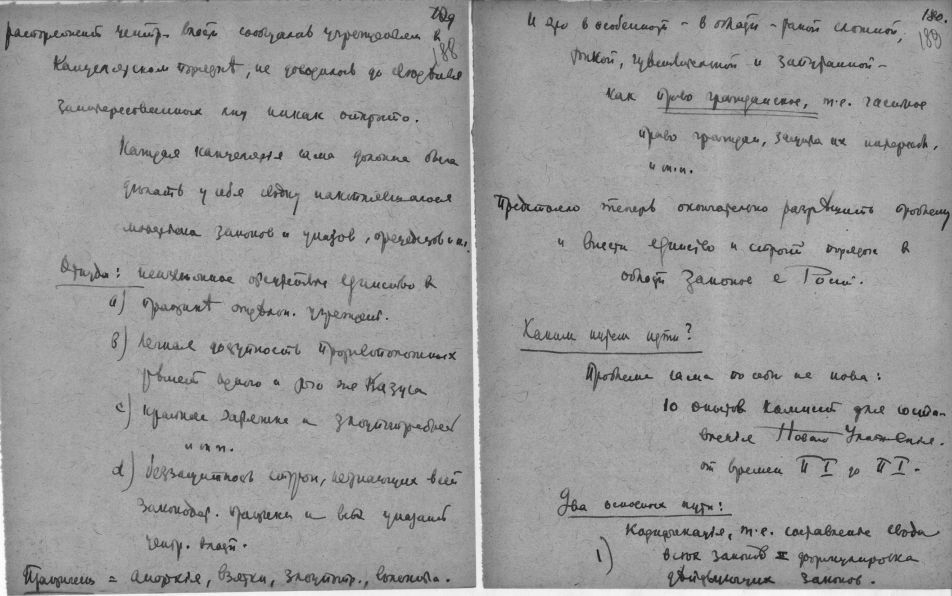 188
центр. власти сообщалась учреждениям в
Канцелярском порядкѣ, не доводилось до свѣдѣнія
заинтересованных лиц никак открыто.
Каждая канцелярія сама должна была
дѣлать у себя сводку накопившагося
множества законов и указов, прецедентов и пр.
Отсюда: неизбѣжное отсутствіе единства в
a) практикѣ отдѣльн. учрежден.
b) легкая доступность противоположных
рѣшеній одного и того же казуса
c) крайнее и злоупотребленій
и т. п.
d) беззащитность сторон, незнающих всей
законодат. практики и всѣх указаній
центр. власти.
= аморкія, взятки, злоупотр., волокита.
180.
189
И это в особенности – в области – такой сложной,
тонкой, чувствительной и запутанной –
как право гражданское, т. е. частное
право граждан, защита их интересов,
и т. п.
Предстояло теперь окончательно разрѣшить проблему
и внести единство и строгій порядок в
области Законов в Россіи.
Каким путем идти?
Проблема сама по себѣ не нова:
10 опытов Комиссій для соста-
вленія Новаго Уложенія.
от времен П I до П I.
Два основных пути:
Кодификація, т. е. составленіе свода
1) всѣх законов формулировка
дѣйствующих законов.